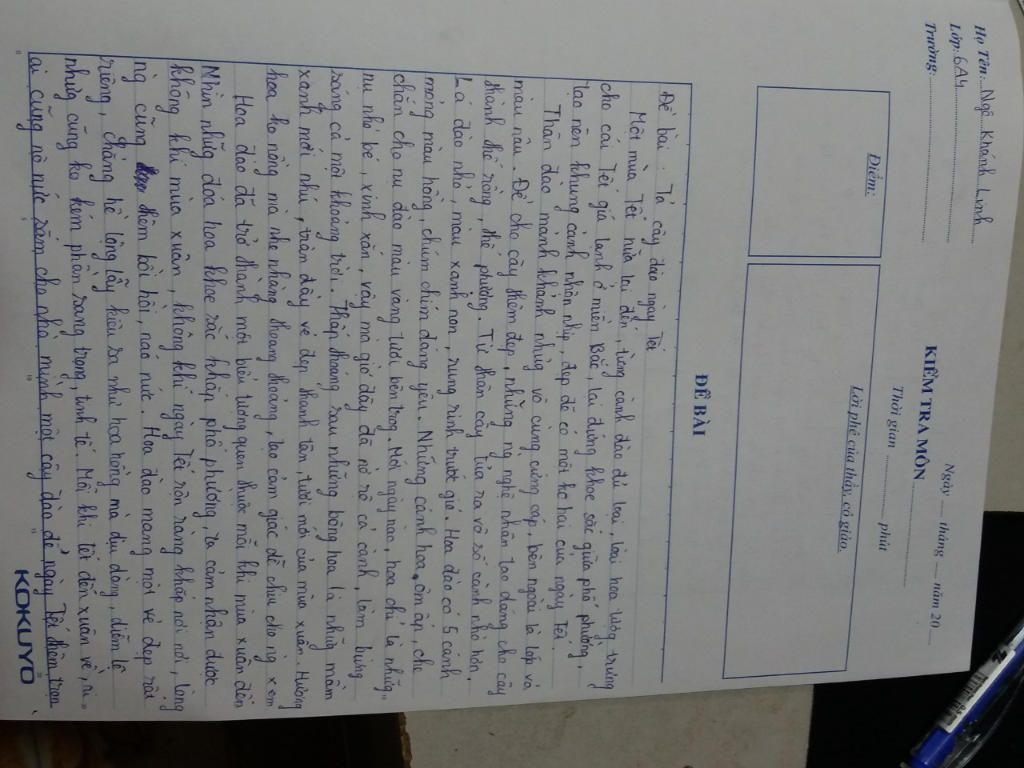 Họ Tên: Ngô Khánh Linh
Lớp: 6A4
Trường:
Ngày ___ tháng ___ năm 20___
KIỂM TRA MÔN
Thời gian ............ phút
Điểm:
Lời phê của thầy, cô giáo
ĐỀ BÀI
Đề bài: Tả cây đào ngày Tết
Một mùa Tết nữa lại đến, từng cành đào đủ loại, loài hoa tượng trưng
cho cái Tết giá lạnh ở miền Bắc, lại đứng khoe sắc giữa phố phường,
tạo nên khung cảnh nhộn nhịp, đẹp đẽ có một ko hai của ngày Tết.
Thân đào mảnh khảnh nhưng vô cùng cứng cáp, bên ngoài là lớp vỏ
màu nâu. Để cho cây thêm đẹp, những ng nghệ nhân tạo dáng cho cây
thành thế rồng, thế phượng. Từ thân cây tủa ra vô số cành nhỏ hơn.
Lá đào nhỏ, màu xanh non, rung rinh trước gió. Hoa đào có 5 cánh
mỏng màu hồng, chúm chím đáng yêu. Những cánh hoa ôm ấp, che
chắn cho nụ đào màu vàng tươi bên trong. Mới ngày nào, hoa chỉ là những
nụ nhỏ bé, xinh xắn, vậy mà giờ đây đã nở rộ cả cành, làm bừng
sáng cả một khoảng trời. Thấp thoáng sau những bông hoa là những mầm
xanh mới nhú, tràn đầy vẻ đẹp thanh tân, tươi mới của mùa xuân. Hương
hoa ko nồng nàn nhẹ nhàng thoang thoảng, tạo cảm giác dễ chịu cho ng xem
Hoa đào đã trở thành một biểu tượng quen thuộc mỗi khi mùa xuân đến
Nhìn những đóa hoa khoe sắc khắp phố phường, ta cảm nhận được
không khí mùa xuân, không khí ngày Tết rộn ràng khắp nơi nơi, lòng
ng cũng thêm bồi hồi, náo nức. Hoa đào mang một vẻ đẹp rất
riêng, chẳng hề lộng lẫy kiêu sa như hoa hồng mà dịu dàng, diễm lệ
nhưng cũng ko kém phần sang trọng, tinh tế. Mỗi khi tết đến xuân về,
ai cũng nô nức sắm cho nhà mình một cây đào để ngày Tết thêm trọn
KOKUYO